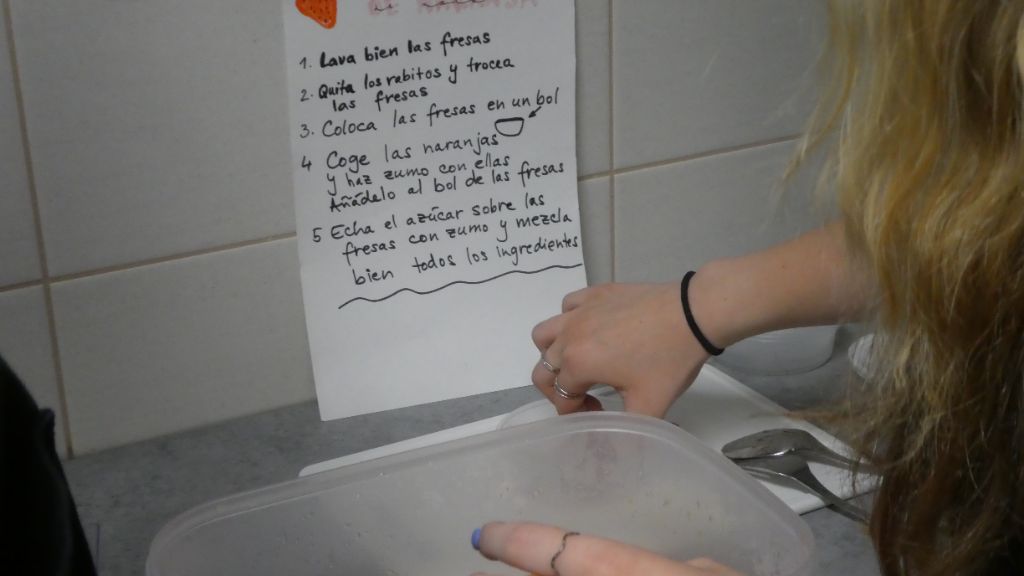 1. Lava bien las fresas
2. Quita los rabitos y trocea
las fresas
3. Coloca las fresas en un bol
4 Coge las naranjas
y haz zumo con ellas
Añádelo al bol de las fresas
5 Echa el azúcar sobre las
fresas con zumo y mezcla
bien todos los ingredientes